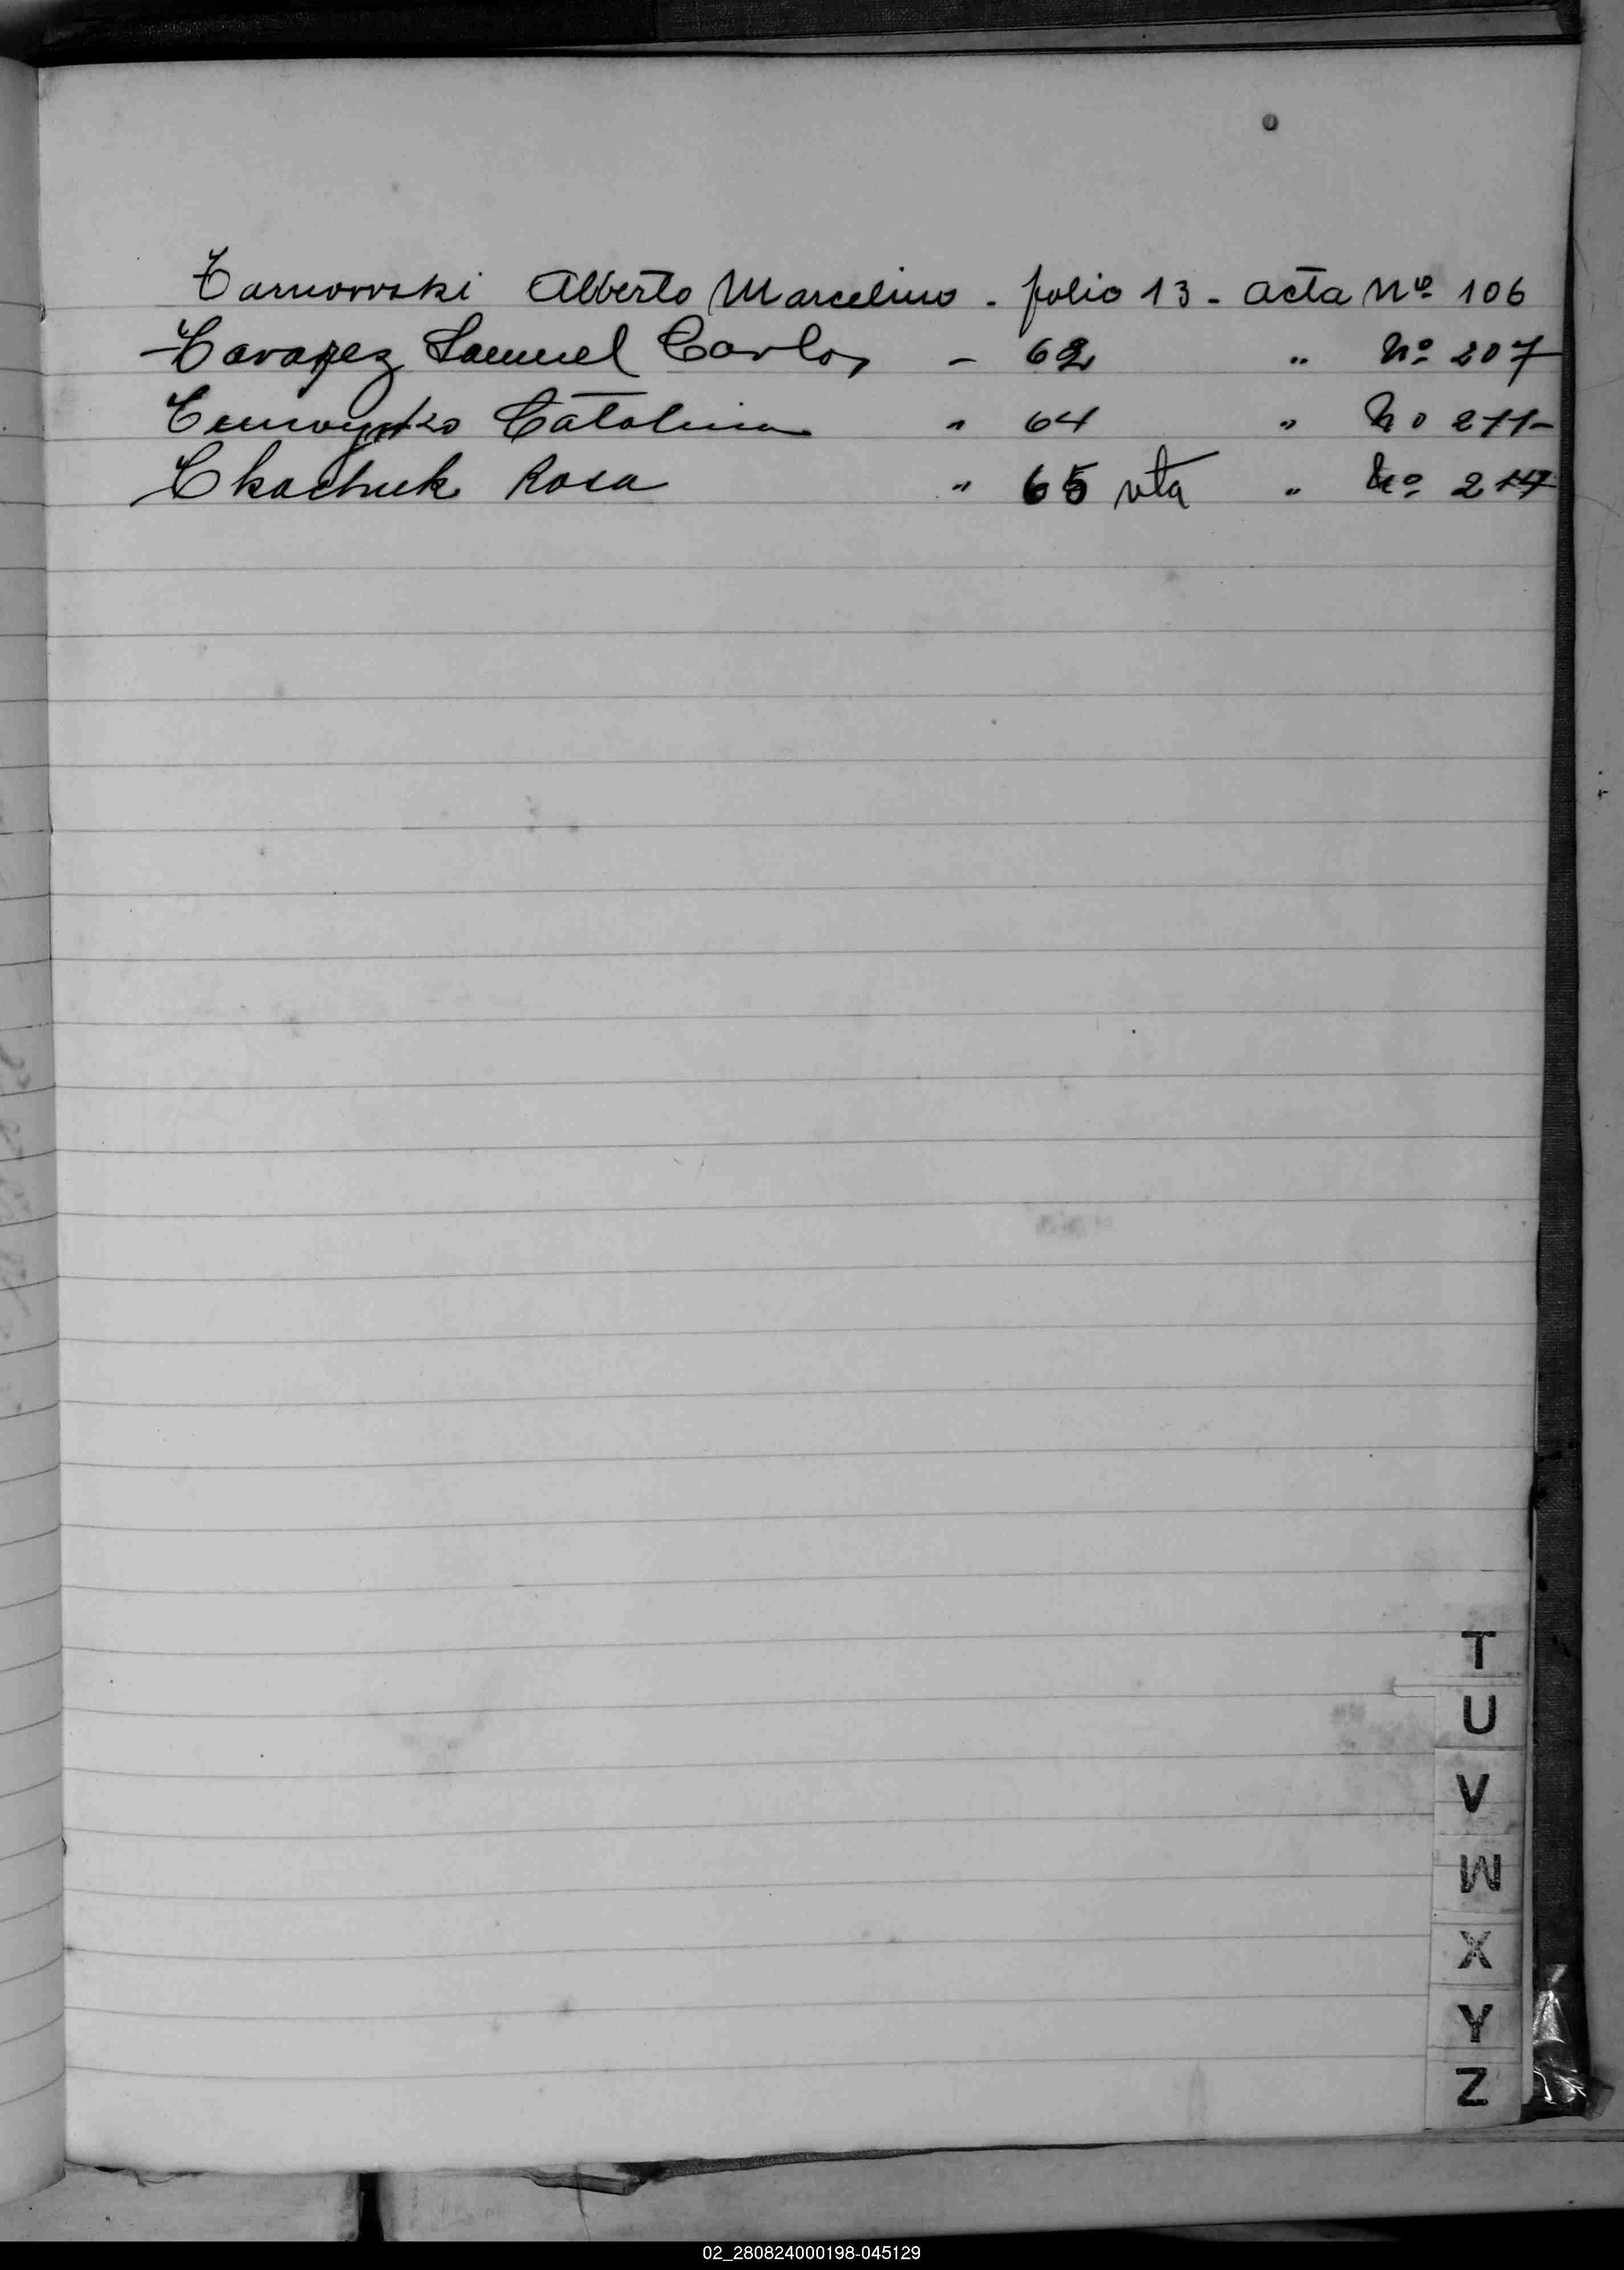 Tarnowski Alberto Marcelino - folio 13 - acta Nº 106
Tarapez Samuel Carlos - 62 " Nº 207
Catalina " 64 " Nº 211-
Tkachuk Rosa " 65 vta " Nº 217
T
U
V
W
X
Y
Z
02_280824000198-045129